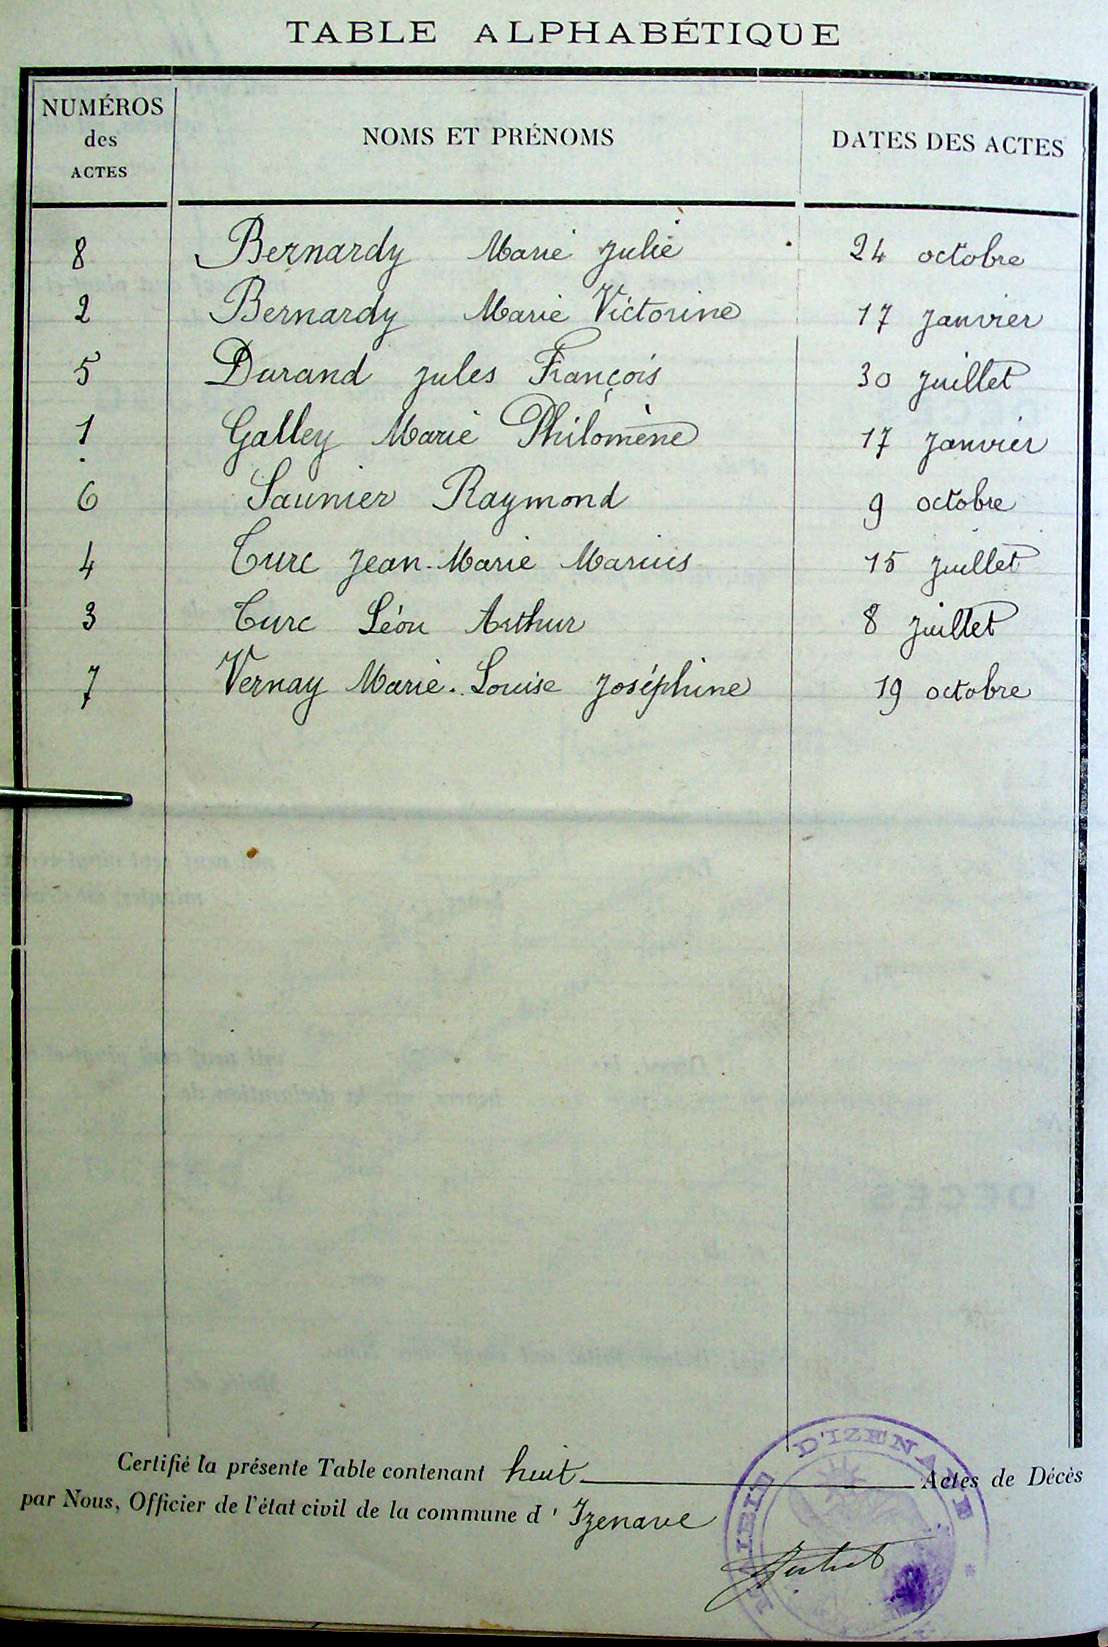 TABLE ALPHABÉTIQUE
NUMÉROS des ACTES NOMS ET PRÉNOMS DATES DES ACTES
8 Bernardy Marie Julie 24 octobre
2 Bernardy Marie Victorine 17 janvier
5 Durand Jules François 30 juillet
1 Galley Marie Philomène 17 janvier
6 Saunier Raymond 9 octobre
4 Turc Jean-Marie Marius 15 juillet
3 Turc Léon Arthur 8 juillet
7 Vernay Marie-Louise Joséphine 19 octobre
Certifié la présente Table contenant huit Actes de Décès
par Nous, Officier de l'état civil de la commune d'Izenave
D'IZENAVE